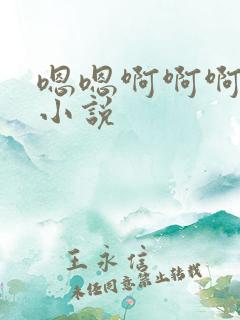 嗯嗯啊啊啊
小说
王永信
未经同意禁止转载